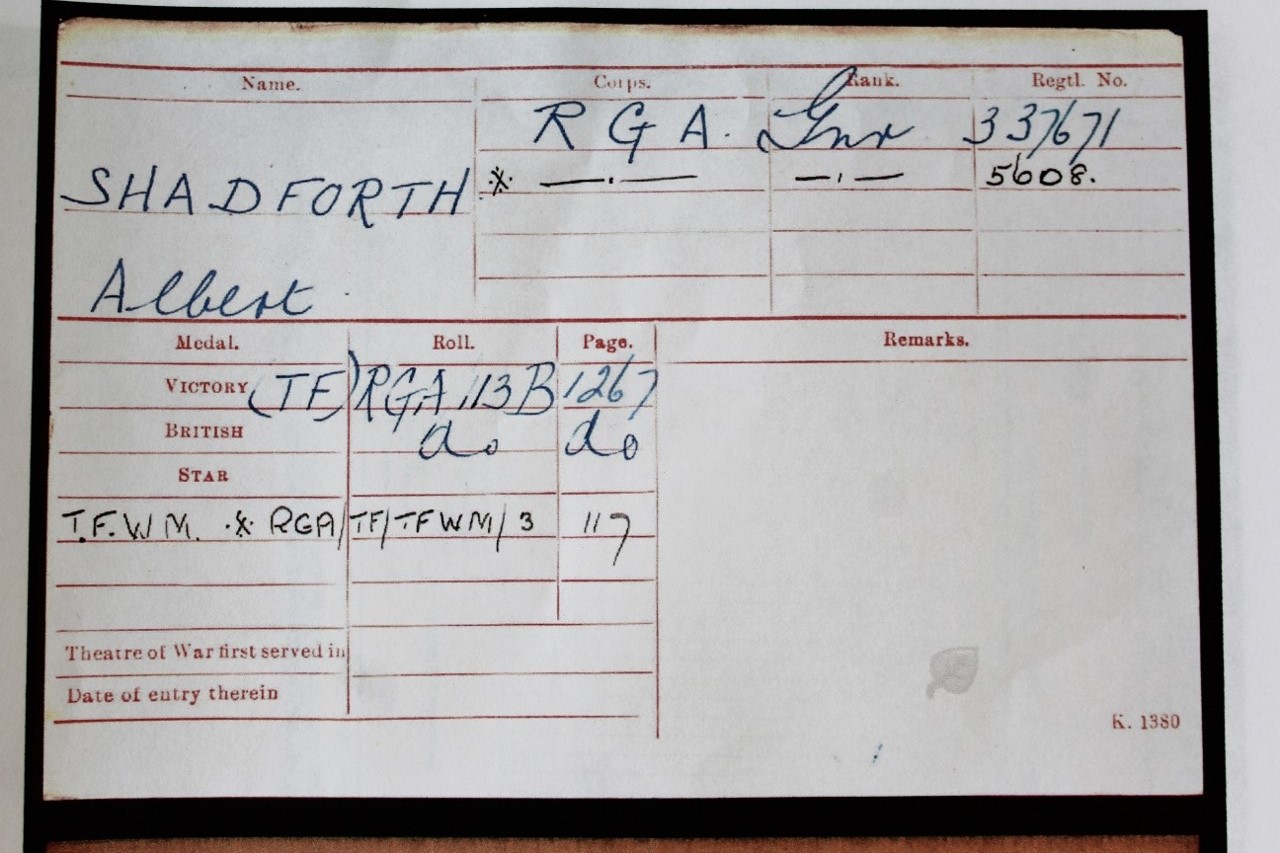 Name. Corps. Rank. Regtl. No.
R G A. Gnr 337671
SHADFORTH * —.— —,— 5608.
Albert
Medal. Roll. Page. Remarks.
VICTORY (TF) RGA/113B 1267
BRITISH do do
STAR
T.F.W.M. * RGA/TF/TFWM/3 117
Theatre of War first served in
Date of entry therein
K. 1380